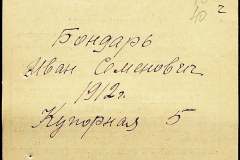 40
Бондарь
Иван Семенович
1912г.
Купорная 5